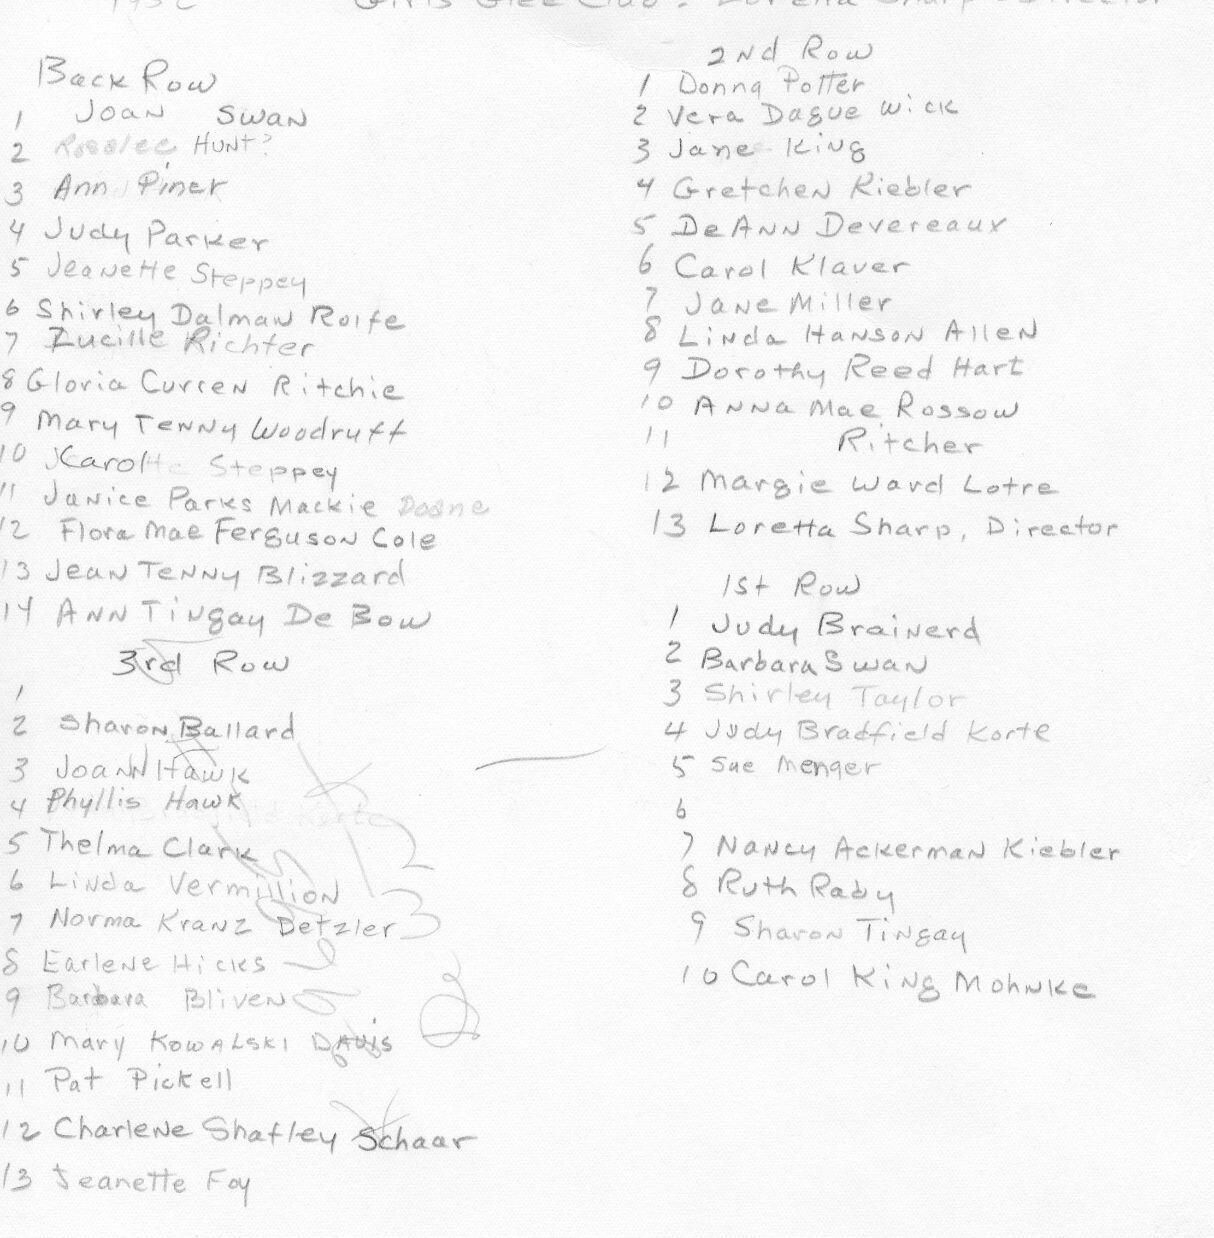 1952 Girls Glee Club. Loretta Sharp - Director
Back Row
1 Joan Swan
2 Rosalee Hunt?
3 Ann Piner
4 Judy Parker
5 Jeanette Steppey
6 Shirley Dalman Rolfe
7 Lucille Richter
8 Gloria Curren Ritchie
9 Mary Tenny Woodruff
10 Karol Steppey
11 Janice Parks Mackie Doane
12 Flora Mae Ferguson Cole
13 Jean Tenny Blizzard
14 Ann Tingay De Bow
3rd Row
1
2 Sharon Ballard
3 Joann Hawk
4 Phyllis Hawk
5 Thelma Clark
6 Linda Vermillion
7 Norma Kranz Detzler
8 Earlene Hicks
9 Barbara Bliven
10 Mary Kowalski Davis
11 Pat Pickell
12 Charlene Shafley Schaar
13 Jeanette Foy
2nd Row
1 Donna Potter
2 Vera Dague Wick
3 Jane King
4 Gretchen Kiebler
5 DeAnn Devereaux
6 Carol Klaver
7 Jane Miller
8 Linda Hanson Allen
9 Dorothy Reed Hart
10 Anna Mae Rossow
11 Ritcher
12 Margie Ward Lotre
13 Loretta Sharp, Director
1st Row
1 Judy Brainerd
2 Barbara Swan
3 Shirley Taylor
4 Judy Bradfield Korte
5 Sue Menger
6
7 Nancy Ackerman Kiebler
8 Ruth Raby
9 Sharon Tingay
10 Carol King Mohnke